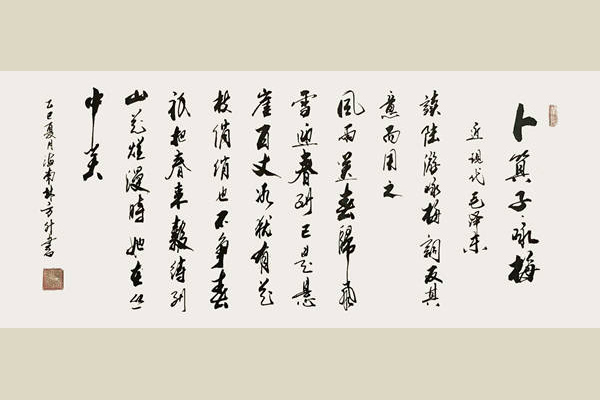 卜算子咏梅
近现代毛泽东
读陆游咏梅词反其
意而用之
风雨送春归飛
雪迎春到已是悬
崖百丈冰犹有花
枝俏俏也不争春
祇把春来報待到
山花烂漫時她在丛
中笑
乙巳夏月海南林方升書